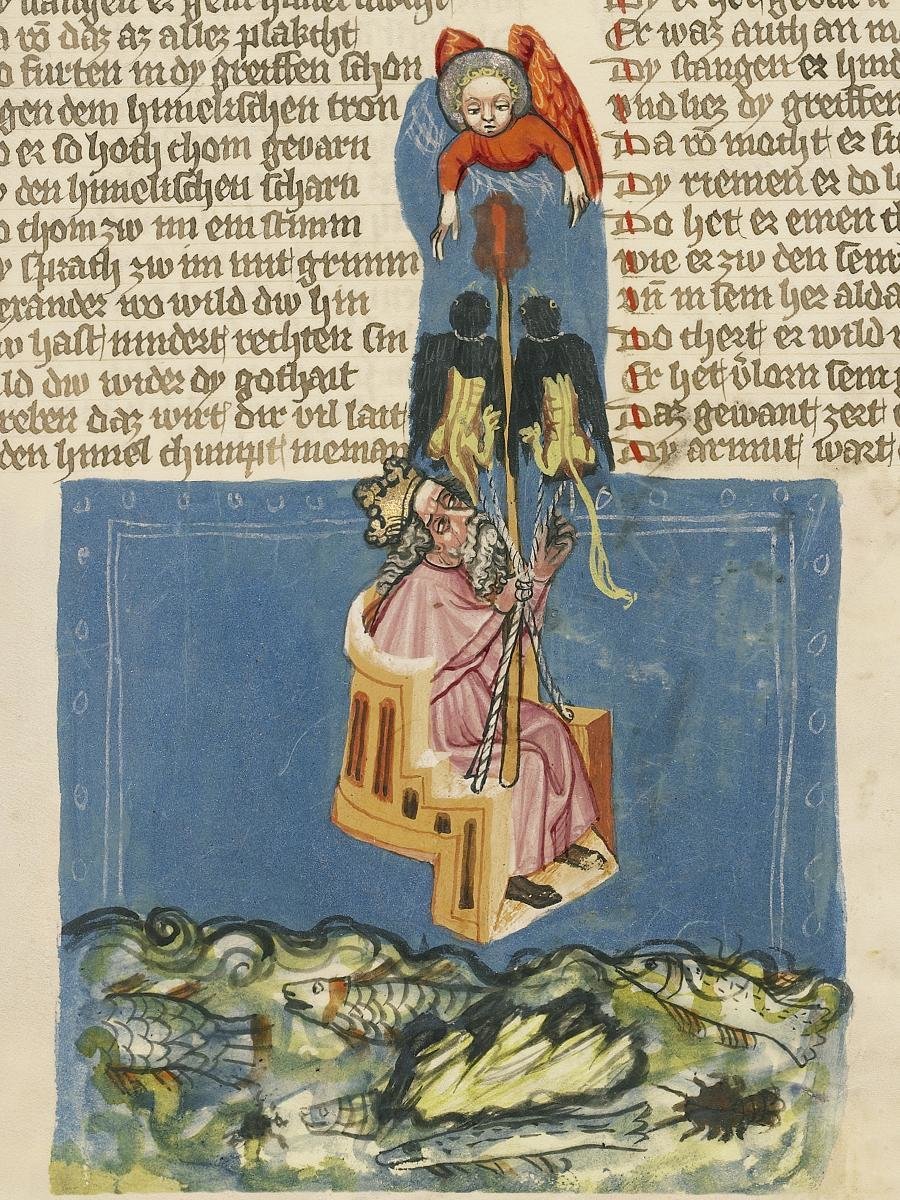 vō daz az allez plakcht
furten in dy greiffen schon
gen dem himelischen tron
er so hoch chom gevarn
den himelischen scharn
chom zw im ein stimm
sprach zw im mit grimm
exander wo wild dw hin
w hast nindert rechten sin
ild dw wider dy gothait
reben daz wirt dir vil lait
den himel chumpt nieman
Dy er het
Er waz auch an
Dy stangen er hind
vnd liez dy greiffen
Da vō mocht er
Dy riemen er do
Do het er einen
wie er zw den sein
vn̄ in sein her alda
Do chert er wild
Er het v̓lorn sein
Daz gewant zert
Dy armut wart